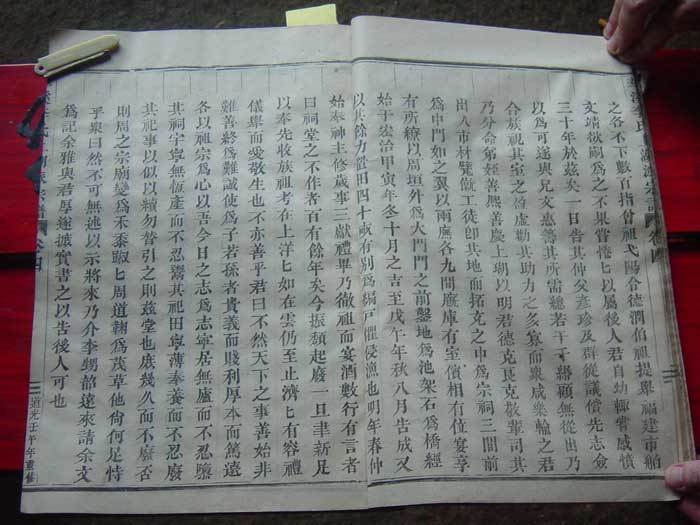 之各不下數百指曾祖弋陽合德潤伯祖提舉福建市舶
文靖欲嗣爲之不果嘗惓匕以屬後人君自幼輒嘗感憤
三十年於兹矣一日告其仲父彥珍及群從議償先志僉
以爲可遂與兄文惠籌其所需總若干緡顧無從出乃
合族視其室之虛勸其助力之多寡而衆咸樂輸之君
乃分命弟姪善熙善慶上瑚以明君德克克敬輩司其
出入市材甓僦工徒卽其地而拓充之中爲宗祠三間前
爲中門如之翼以兩廡各九間庫有室儐相有位宴享
有所繚以周垣外爲大門門之前鑿地爲池架石爲橋經
始于宏治甲寅年冬十月之吉至戊午年秋八月告成又
以其餘力置田四十畝有別爲戶懼侵漁也明年春仲
始奉神主修歲事三獻禮畢乃徹俎而宴酒數行有言者
曰祠堂之不作者百有餘年矣今振頽起廢一旦聿新足
以奉先收族祖考在上洋匕如在雲仍至止濟匕有容禮
儀舉而愛敬生也不亦善乎君曰不然天下之事善始非
難善終爲難誠使爲子若孫者貴義而賤利厚本而篤遠
各以祖宗爲心以吾今日之志爲志寧居無廬而不忍隳
其祠宇寧無恆產而不忍鬻其祀田寧薄奉養而不忍廢
其祀事以似以續勿替引之則兹堂也庶幾久而不廢否
則周之宗廟變爲禾黍踧匕周道鞠爲茂草他尙何足恃
乎衆曰然不可無述以示將來乃介李甥韶遠來請余文
爲記余雅與君厚遂摭實書之以告後人可也
卷四
道光壬午年重修